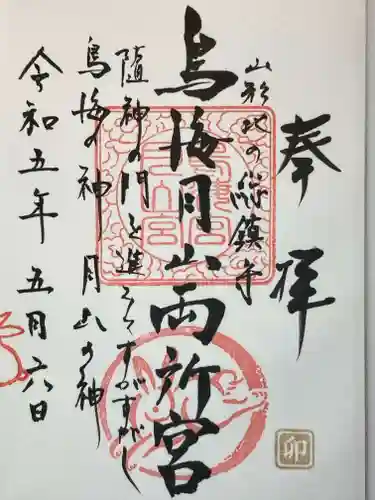 奉拝
山形北の総鎮守
鳥海月山両所宮
随神の門を進みてすがすがし
鳥海の神 月山の神
令和五年五月六日
卯